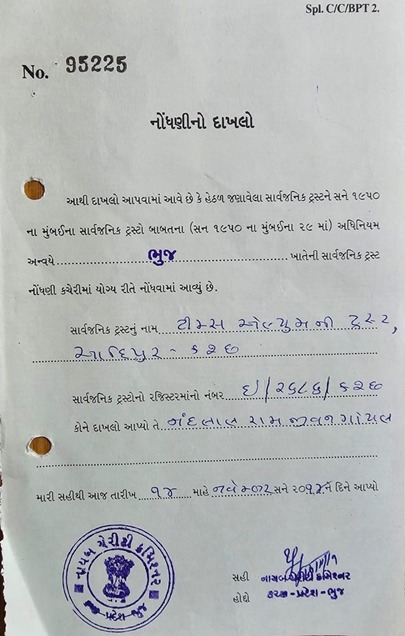 Spl. C/C/BPT 2.
No. 95225
નોંધણીનો દાખલો
આથી દાખલો આપવામાં આવે છે કે હેઠળ જણાવેલા સાર્વજનિક ટ્રસ્ટને સને ૧૯૫૦
ના મુંબઈના સાર્વજનિક ટ્રસ્ટો બાબતના (સન ૧૯૫૦ ના મુંબઈના ૨૯ માં) અધિનિયમ
અન્વયે ભુજ ખાતેની સાર્વજનિક ટ્રસ્ટ
નોંધણી કચેરીમાં યોગ્ય રીતે નોંધવામાં આવ્યું છે.
સાર્વજનિક ટ્રસ્ટનું નામ ટીમ્સ એલ્યુમની ટ્રસ્ટ,
આદિપુર - કચ્છ
સાર્વજનિક ટ્રસ્ટોનો રજિસ્ટરમાંનો નંબર ઈ/૨૬૮૬/કચ્છ
કોને દાખલો આપ્યો તે નંદલાલ રામજીવન ગોયલ
મારી સહીથી આજ તારીખ ૧૪ માહે નવેમ્બર સને ૨૦૧ ને દિને આપ્યો
નાયબ ચેરીટી કમિશ્નર
કચ્છ - પ્રદેશ - ભુજ
સહી નાયબ ચેરીટી કમિશ્નર
હોદ્દો કચ્છ-પ્રદેશ-ભુજ